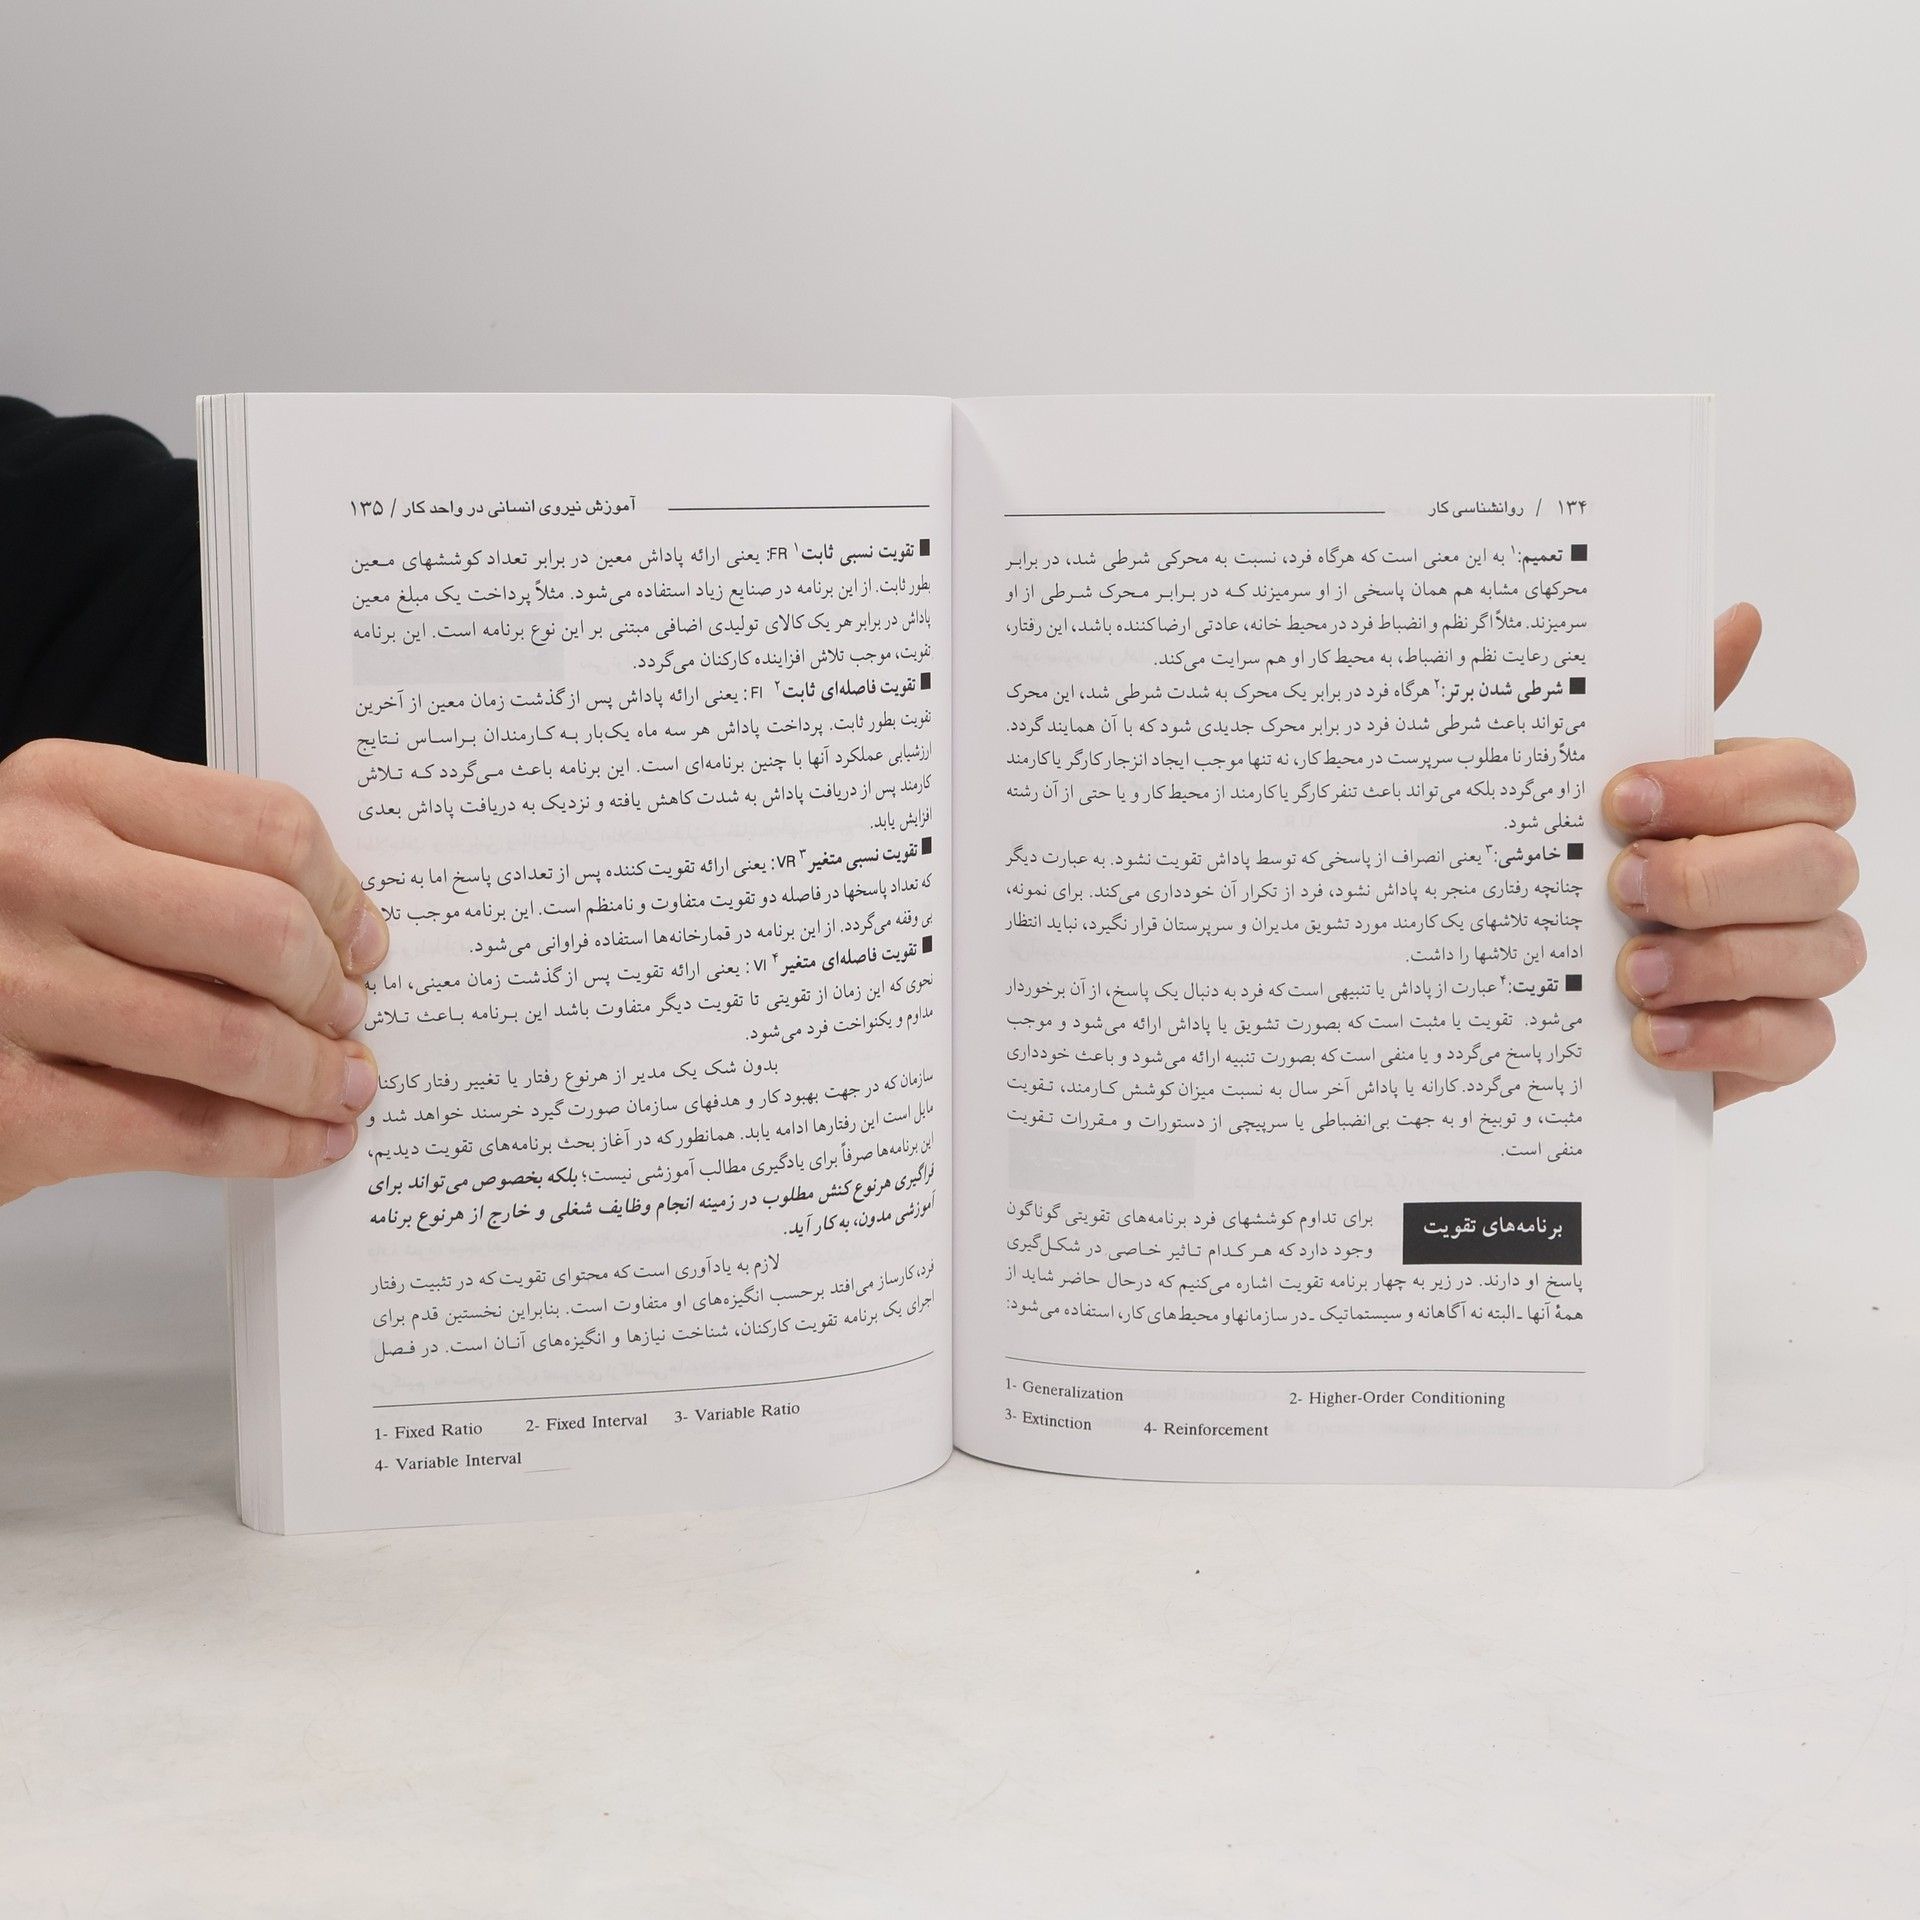 ۱۳۴ / روانشناسی کار
■ تعمیم:۱ به این معنی است که هرگاه فرد، نسبت به محرکی شرطی شد، در برابر
محرکهای مشابه هم همان پاسخی از او سرمیزند که در برابر محرک شرطی از او
سرمیزند. مثلاً اگر نظم و انضباط فرد در محیط خانه، عادتی ارضاکننده باشد، این رفتار،
یعنی رعایت نظم و انضباط، به محیط کار او هم سرایت می‌کند.
■ شرطی شدن برتر:۲ هرگاه فرد در برابر یک محرک به شدت شرطی شد، این محرک
می‌تواند باعث شرطی شدن فرد در برابر محرک جدیدی شود که با آن همایند گردد.
مثلاً رفتار نا مطلوب سرپرست در محیط کار، نه تنها موجب ایجاد انزجار کارگر یا کارمند
از او می‌گردد بلکه می‌تواند باعث تنفر کارگر یا کارمند از محیط کار و یا حتی از آن رشته
شغلی شود.
■ خاموشی:۳ یعنی انصراف از پاسخی که توسط پاداش تقویت نشود. به عبارت دیگر
چنانچه رفتاری منجر به پاداش نشود، فرد از تکرار آن خودداری می‌کند. برای نمونه،
چنانچه تلاشهای یک کارمند مورد تشویق مدیران و سرپرستان قرار نگیرد، نباید انتظار
ادامه این تلاشها را داشت.
■ تقویت:۴ عبارت از پاداش یا تنبیهی است که فرد به دنبال یک پاسخ، از آن برخوردار
می‌شود. تقویت یا مثبت است که بصورت تشویق یا پاداش ارائه می‌شود و موجب
تکرار پاسخ می‌گردد و یا منفی است که بصورت تنبیه ارائه می‌شود و باعث خودداری
از پاسخ می‌گردد. کارانه یا پاداش آخر سال به نسبت میزان کوشش کارمند، تقویت
مثبت، و توبیخ او به جهت بی‌انضباطی یا سرپیچی از دستورات و مقررات تقویت
منفی است.
برنامه‌های تقویت
برای تداوم کوششهای فرد برنامه‌های تقویتی گوناگون
وجود دارد که هر کدام تاثیر خاصی در شکل‌گیری
پاسخ او دارند. در زیر به چهار برنامه تقویت اشاره می‌کنیم که درحال حاضر شاید از
همهٔ آنها ـ البته نه آگاهانه و سیستماتیک ـ در سازمانهاو محیط‌های کار، استفاده می‌شود:
1- Generalization 2- Higher-Order Conditioning
3- Extinction 4- Reinforcement
آموزش نیروی انسانی در واحد کار / ۱۳۵
■ تقویت نسبی ثابت۱ FR: یعنی ارائه پاداش معین در برابر تعداد کوششهای معین
بطور ثابت. از این برنامه در صنایع زیاد استفاده می‌شود. مثلاً پرداخت یک مبلغ معین
پاداش در برابر هر یک کالای تولیدی اضافی مبتنی بر این نوع برنامه است. این برنامه
تقویت، موجب تلاش افزاینده کارکنان می‌گردد.
■ تقویت فاصله‌ای ثابت۲ FI: یعنی ارائه پاداش پس از گذشت زمان معین از آخرین
تقویت بطور ثابت. پرداخت پاداش هر سه ماه یک‌بار به کارمندان براساس نتایج
ارزشیابی عملکرد آنها با چنین برنامه‌ای است. این برنامه باعث می‌گردد که تلاش
کارمند پس از دریافت پاداش به شدت کاهش یافته و نزدیک به دریافت پاداش بعدی
افزایش یابد.
■ تقویت نسبی متغیر۳ VR: یعنی ارائه تقویت کننده پس از تعدادی پاسخ اما به نحوی
که تعداد پاسخها در فاصله دو تقویت متفاوت و نامنظم است. این برنامه موجب
بی وقفه می‌گردد. از این برنامه در قمارخانه‌ها استفاده فراوانی می‌شود.
■ تقویت فاصله‌ای متغیر۴ VI: یعنی ارائه تقویت پس از گذشت زمان معینی، اما به
نحوی که این زمان از تقویتی تا تقویت دیگر متفاوت باشد این برنامه باعث تلاش
مداوم و یکنواخت فرد می‌شود.
بدون شک یک مدیر از هرنوع رفتار یا تغییر رفتار کارکنان
سازمان که در جهت بهبود کار و هدفهای سازمان صورت گیرد خرسند خواهد شد و
مایل است این رفتارها ادامه یابد. همانطورکه در آغاز بحث برنامه‌های تقویت دیدیم،
این برنامه‌ها صرفاً برای یادگیری مطالب آموزشی نیست؛ بلکه بخصوص می‌تواند برای
فراگیری هرنوع کنش مطلوب در زمینه انجام وظایف شغلی و خارج از هرنوع برنامه
آموزشی مدون، به کار آید.
لازم به یادآوری است که محتوای تقویت که در تثبیت رفتار
فرد، کارساز می‌افتد برحسب انگیزه‌های او متفاوت است. بنابراین نخستین قدم برای
اجرای یک برنامه تقویت کارکنان، شناخت نیازها و انگیزه‌های آنان است. در فصل
1- Fixed Ratio 2- Fixed Interval 3- Variable Ratio
4- Variable Interval